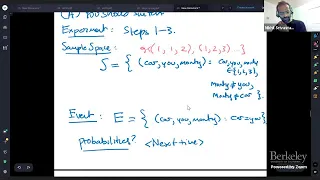 (A) You should switch
Experiment: Steps 1-3.
Sample Space: eg (1, 1, 2), (1,2,3) ...}
S = { (car, you, monty) : car, you, monty
∈ {1,2,3},
monty ≠ you,
monty ≠ car }.
Event: E = { (car, you, monty) : car = you }
probabilities? <Next time>
Berkeley
Powered by Zoom